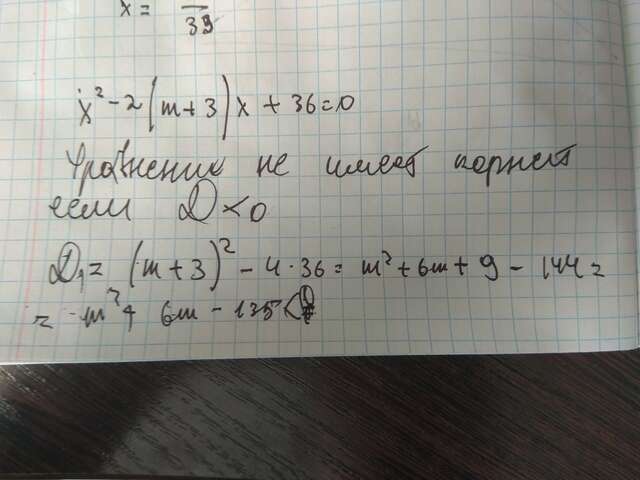 x = — 39
x² - 2(m+3)x + 36 = 0
Уравнение не имеет корней
если D < 0
D₁ = (m+3)² - 4·36 = m² + 6m + 9 - 144 =
= m² + 6m - 135 < 0